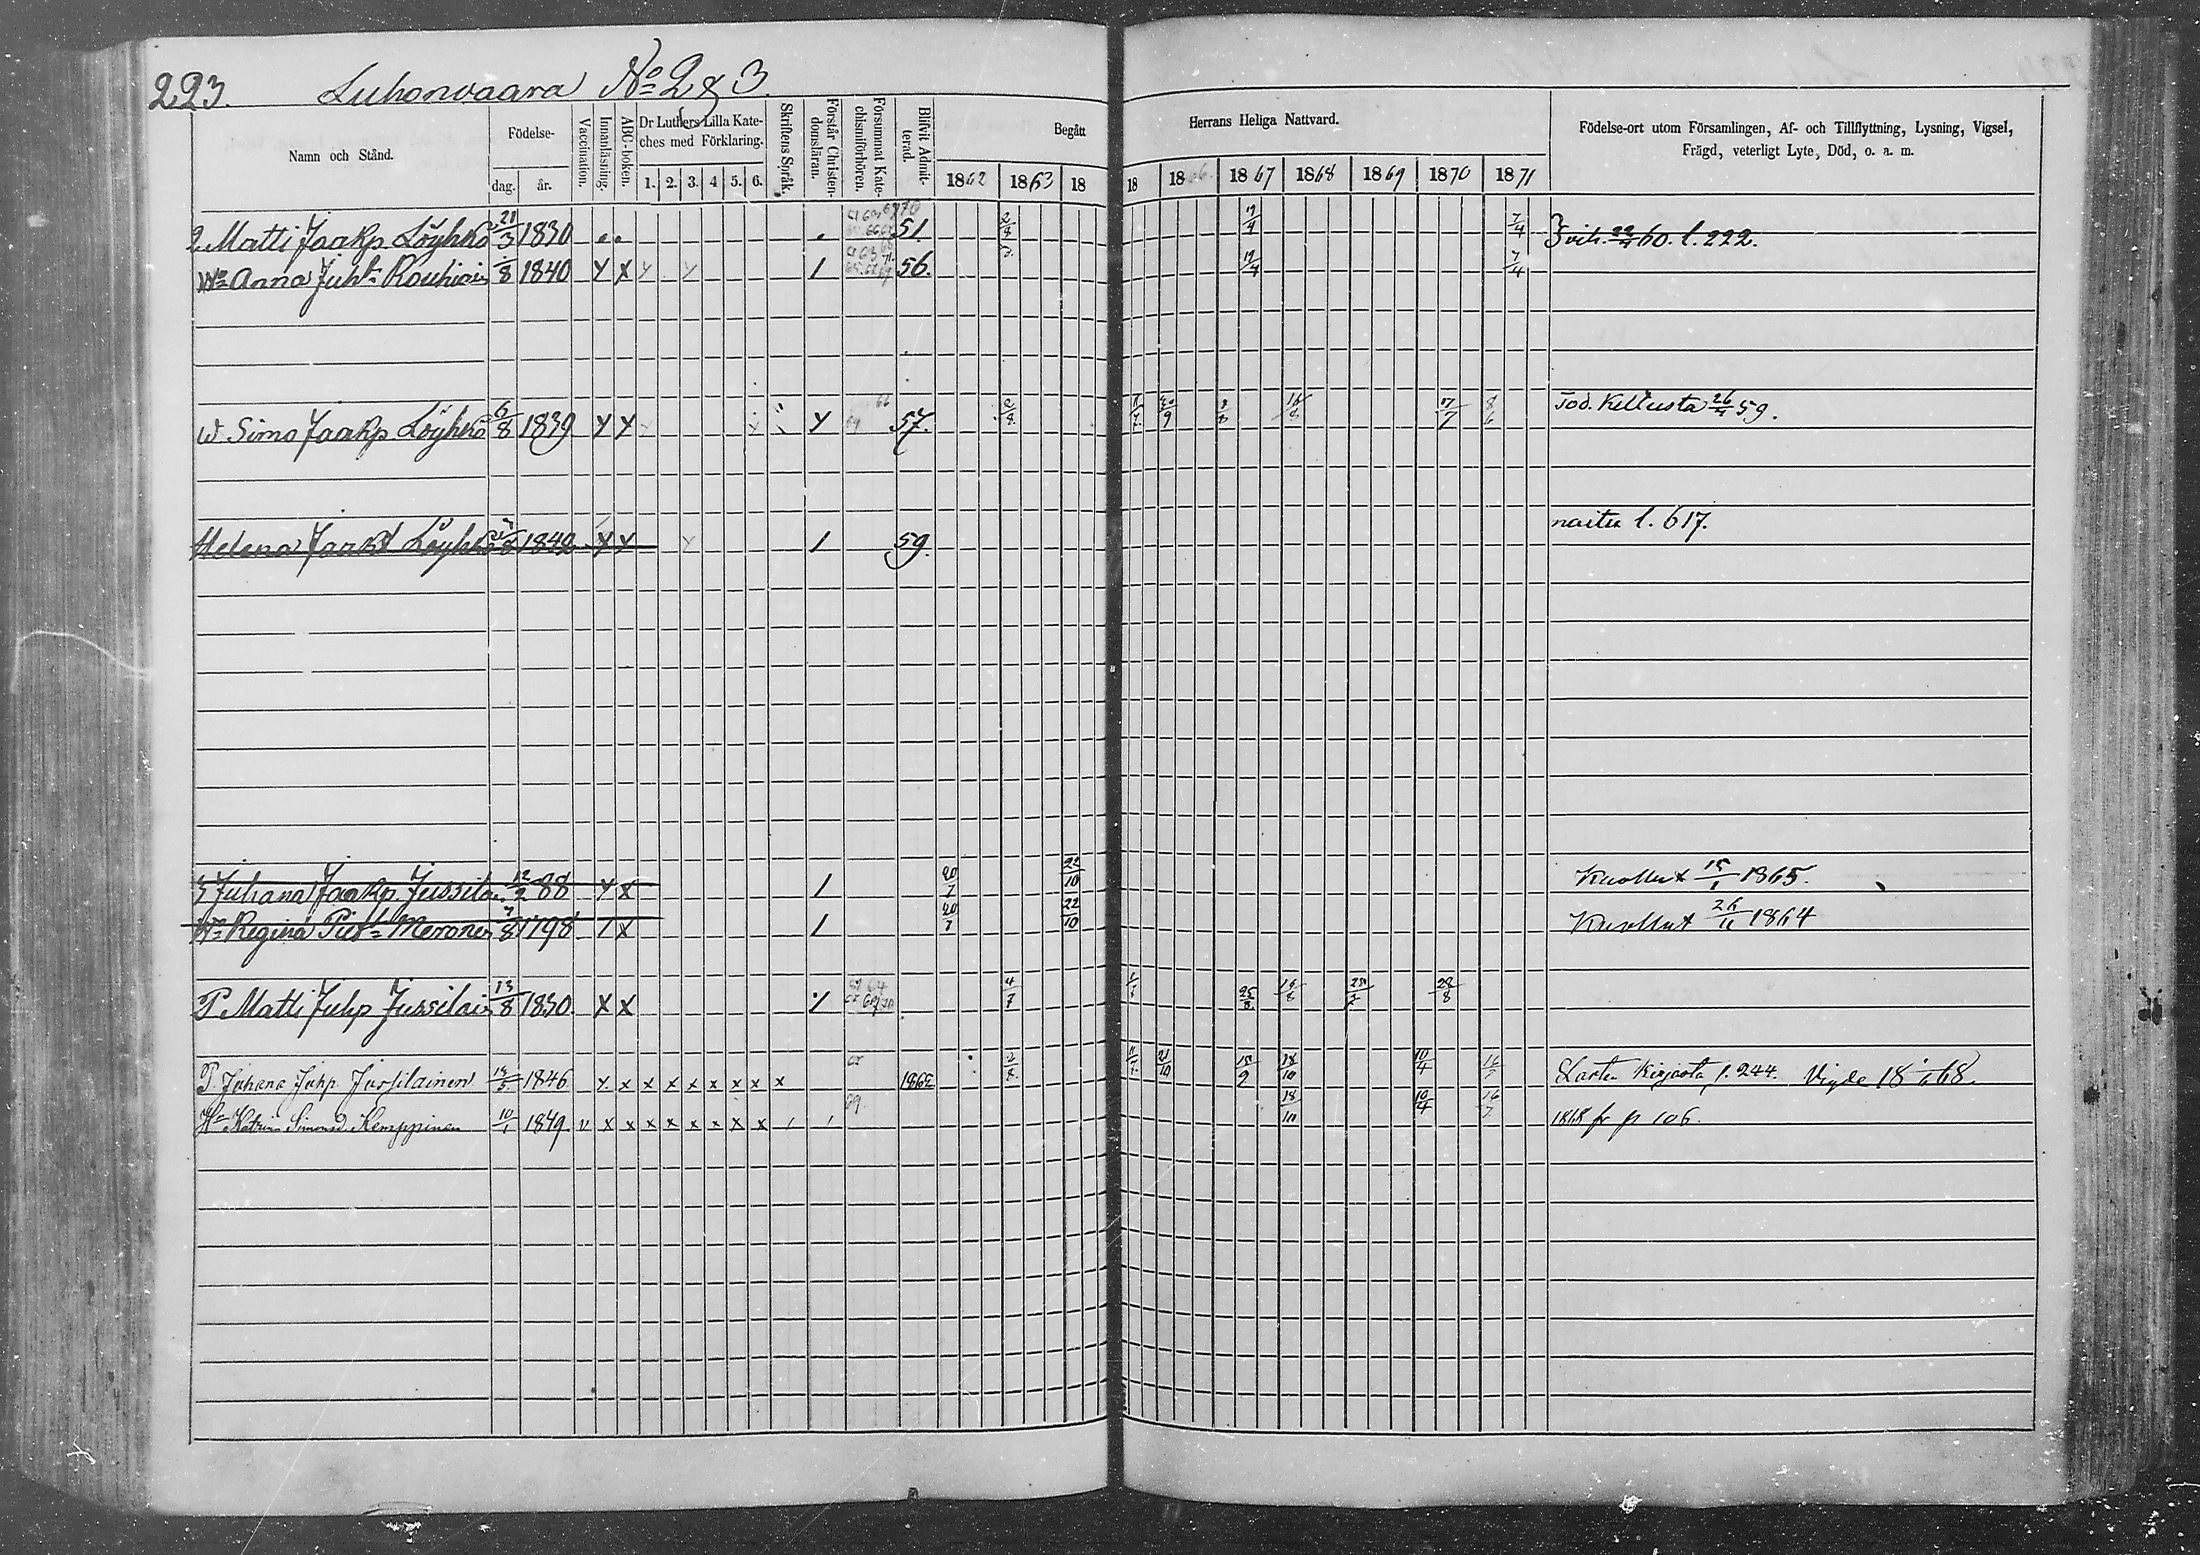 223. Luhonvaara No 2 & 3.
Namn och Stånd. Födelse- dag. år. Vaccination. Innanläsning. ABC-boken. Dr Luthers Lilla Kateches med Förklaring. 1. 2. 3. 4 5. 6. Skriftens Språk. Förstår Christendomsläran. Försummat Katechismiförhören. Blifvit Admitterad. Begått Herrans Heliga Nattvard. Födelse-ort utom Församlingen, Af- och Tillflyttning, Lysning, Vigsel, Frägd, veterligt Lyte, Död, o. a. m.
1862 1863 18 18 1866 1867 1868 1869 1870 1871
2 Matti Jaakp. Löyhkö 21/3 1830 51. 2/8 7/4 vih. 22/4 60. l. 222.
Anna Juht. Rouhiain /8 1840 Y X Y Y 1 56. 7/4
Simo Jaakp Löyhkö 6/8 1839 Y Y Y 57. 2/8 16/8 8/6 Tod. Kellusta 26/4 59.
Helena Jaakt Löyhkö 1842 Y Y Y 1 59. naitu l. 617.
3 Juhana Jaakp. Jussilai 12/2 88 Y X 1 20/7 22/10 Kuollut 15/1 1865.
Regina Piet Meronen 7/8 1798 1 X 1 20/7 22/10 Kuollut 26/11 1864
P Matti Juhp Jussilai 13/8 1830. X X 4/7 25/8 16/8 28/8
P. Juhana Juhp. Jussilainen 1846 Y x x x x x x x x 1862 2/8 21/10 18/10 10/4 16/7 Lasten Kirjasta l. 244. Vigde 18 68.
Katrin Simonsd Kemppinen 10/1 1849 v x x x x x x x x 69. 18/10 10/4 16/7 1868 fr p 106.